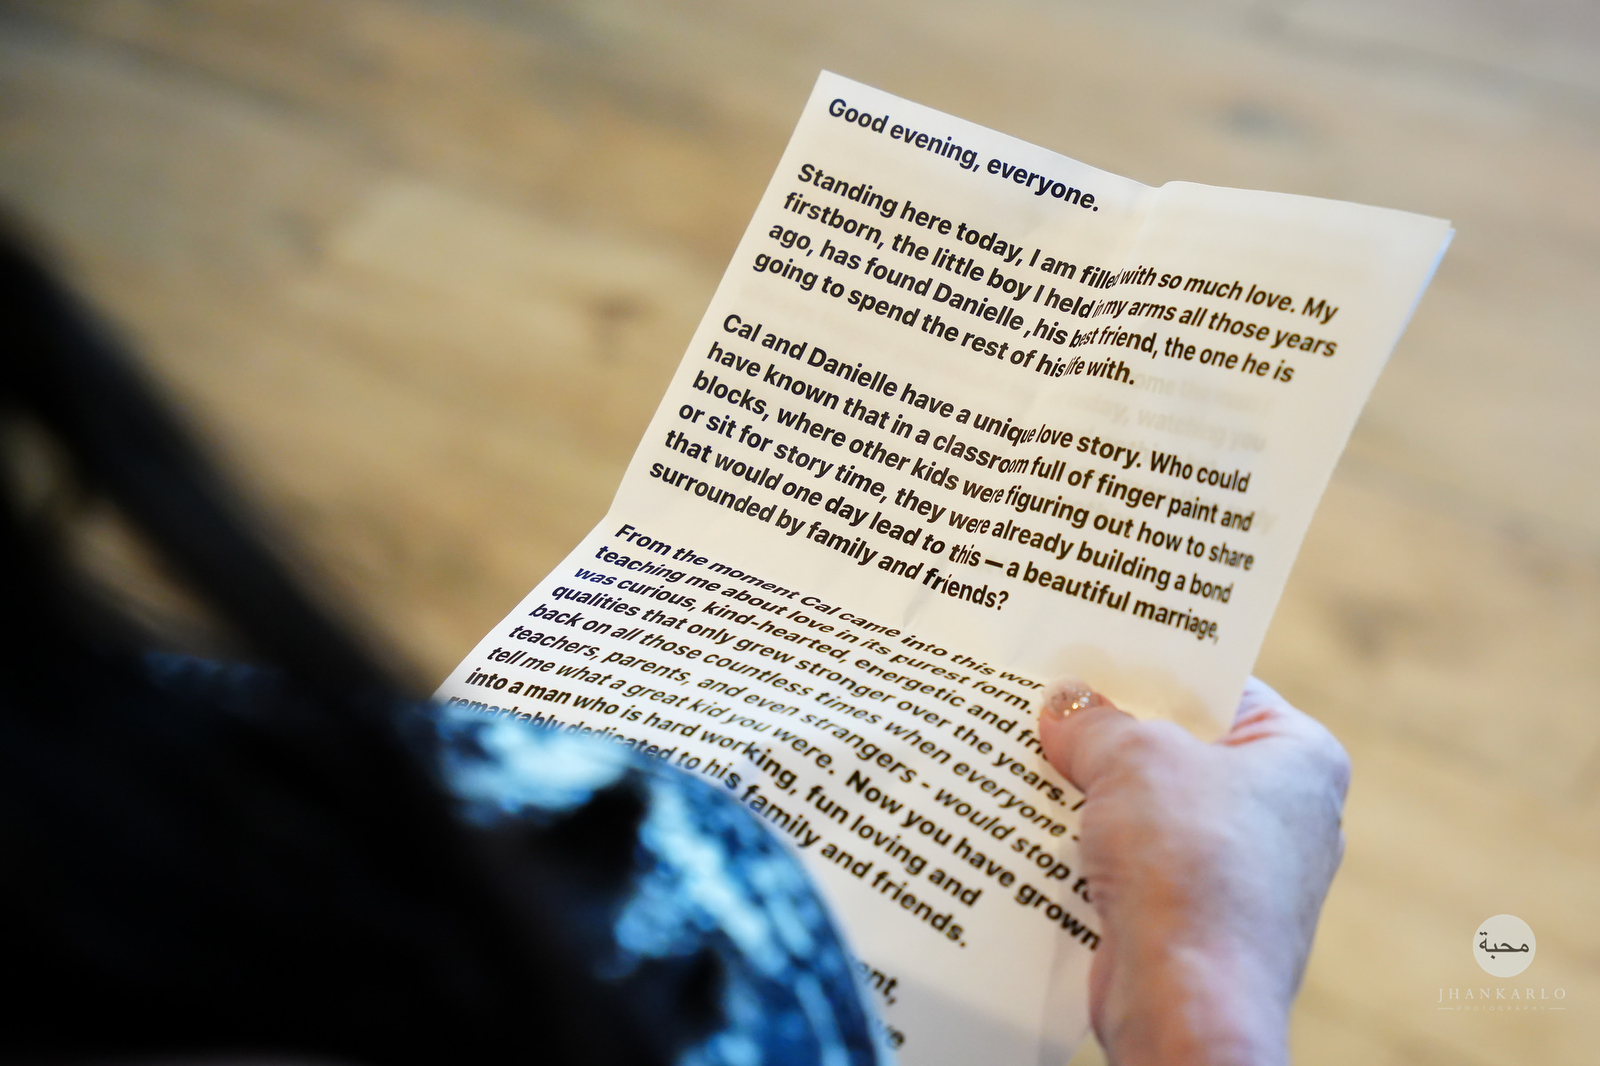 Good evening, everyone.
Standing here today, I am filled with so much love. My
firstborn, the little boy I held in my arms all those years
ago, has found Danielle ,his best friend, the one he is
going to spend the rest of his life with.
Cal and Danielle have a unique love story. Who could
have known that in a classroom full of finger paint and
blocks, where other kids were figuring out how to share
or sit for story time, they were already building a bond
that would one day lead to this — a beautiful marriage,
surrounded by family and friends?
From the moment Cal came into this
teaching me about love in its purest form.
was curious, kind-hearted, energetic and
qualities that only grew stronger over the years. I
back on all those countless times when everyone -
teachers, parents, and even strangers - would stop
tell me what a great kid you were. Now you have grown
into a man who is hard working, fun loving and
remarkably dedicated to his family and friends.
محبة
JHANKARLO
PHOTOGRAPHY